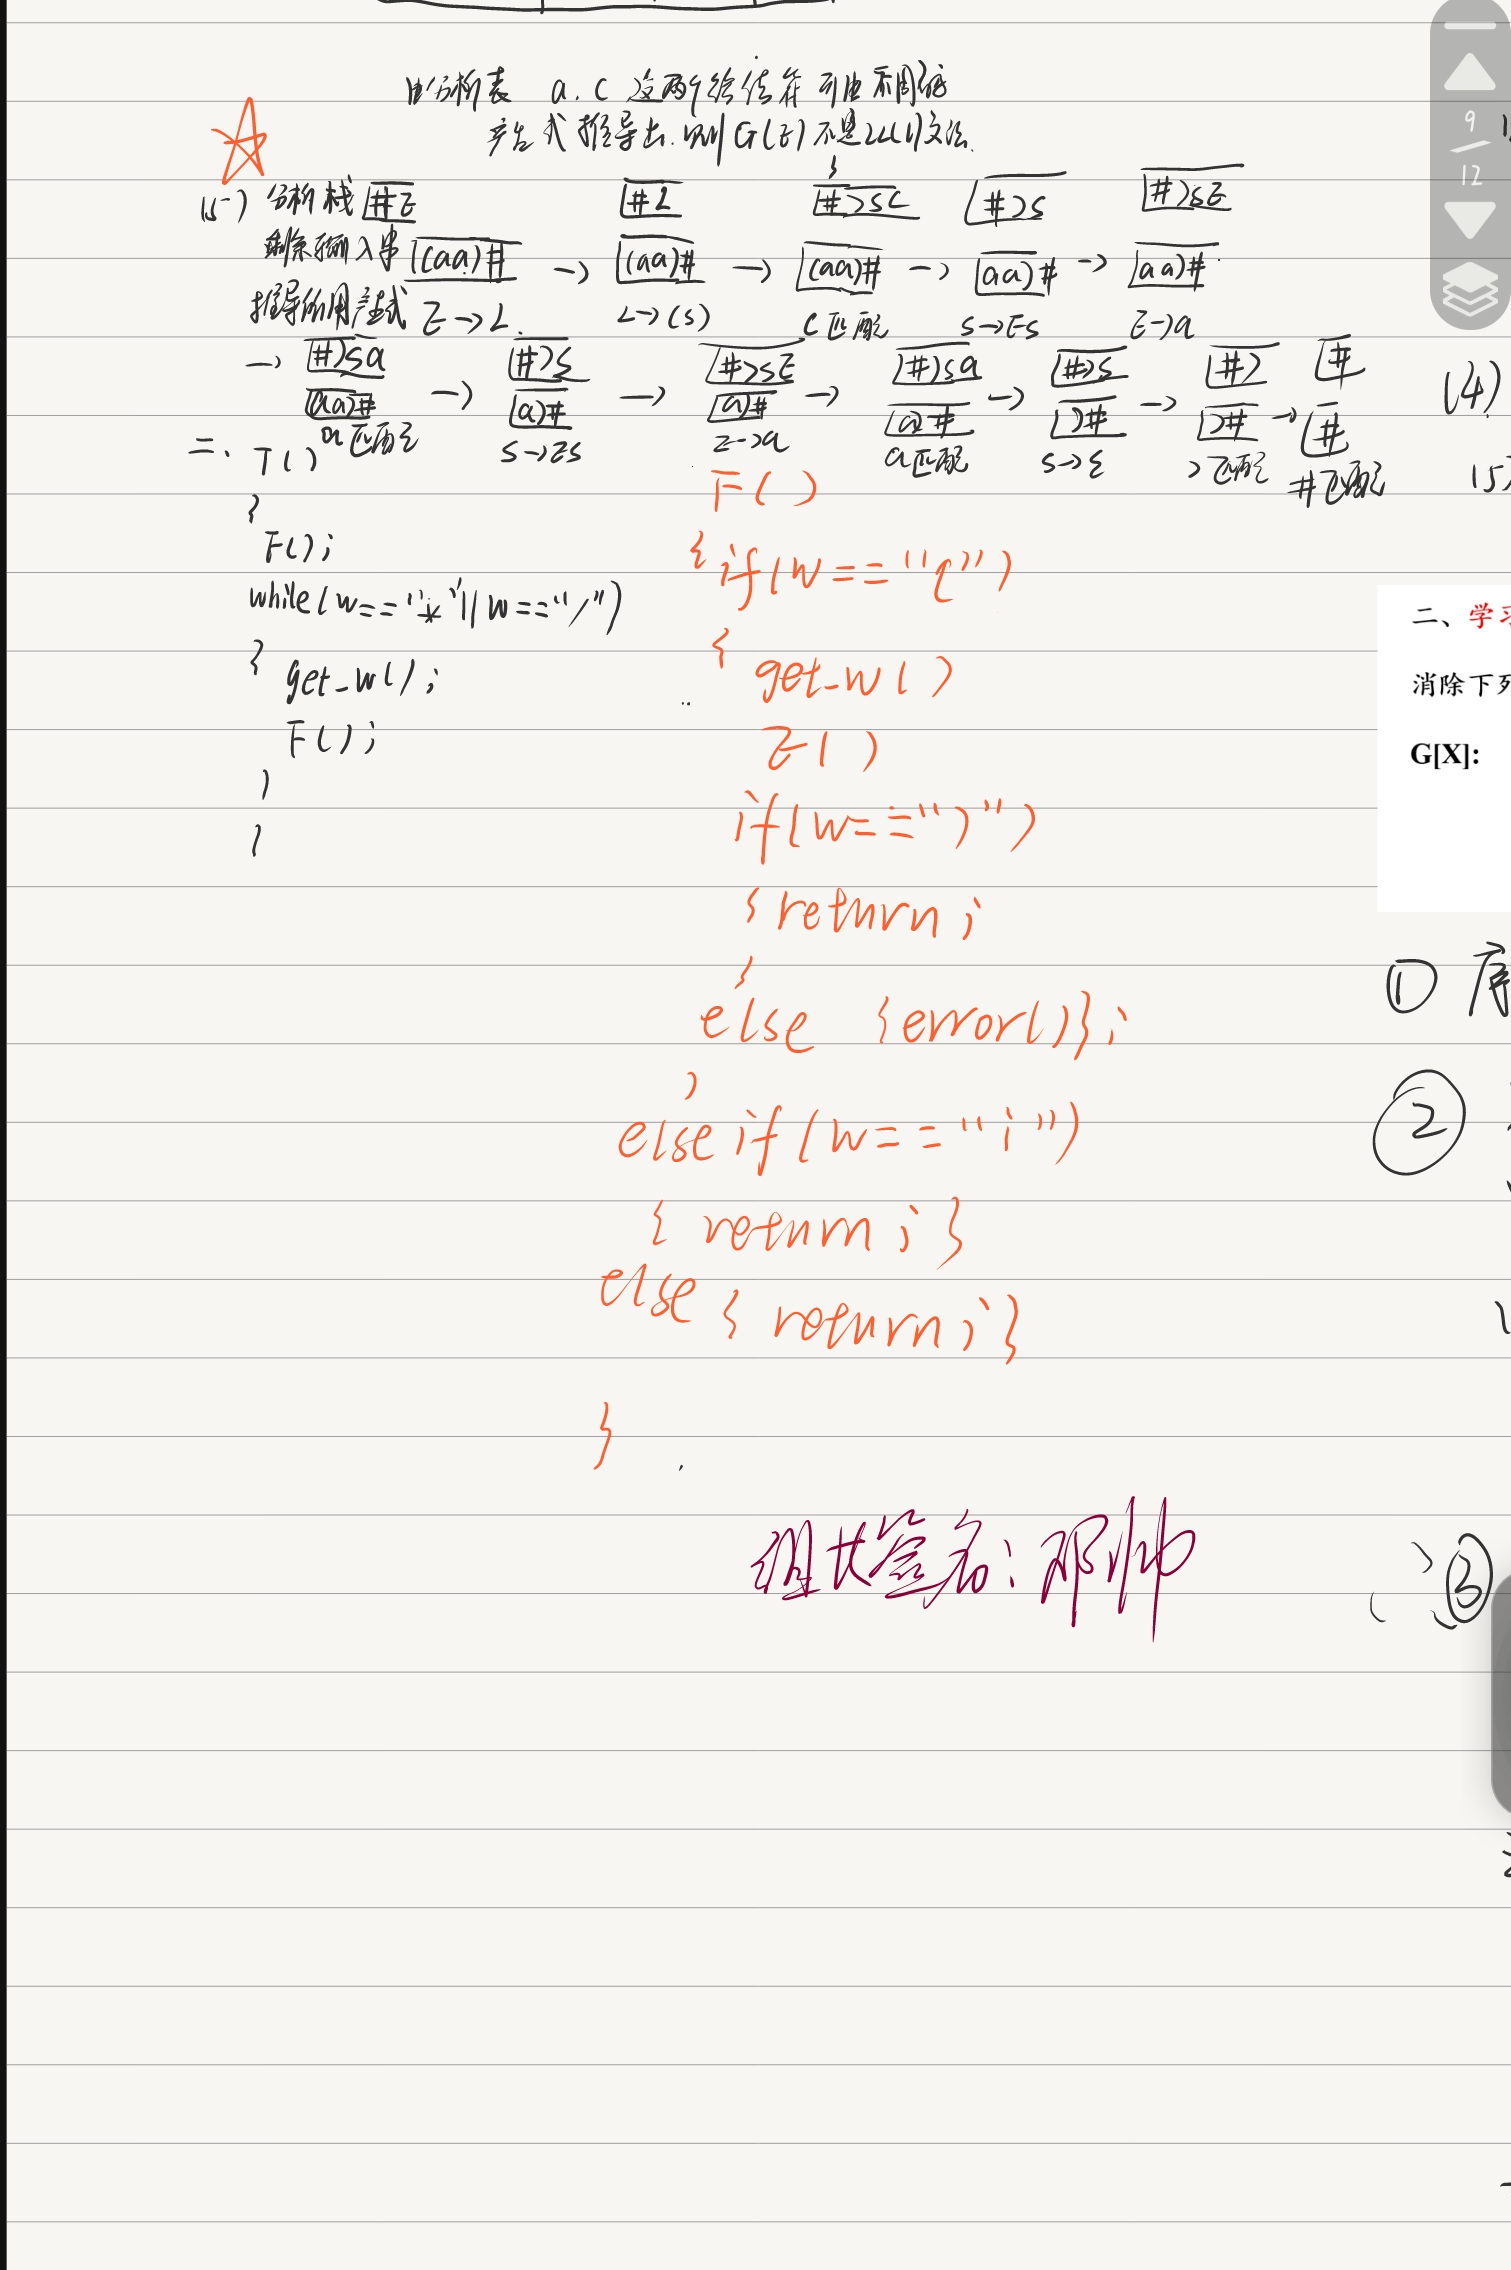 由分析表 a.c 这两个终结符可由不同的
产生式推导出.则G(E)不是LL(1)文法.
(5) 分析栈 #E #L #)S( #)S #)SE
剩余输入串 (aa)# → (aa)# → (aa)# → aa)# → aa)#
推导所用产生式 E→L. L→(S) (匹配 S→ES E→a
→ #)Sa #)S #)SE #)Sa #)S #) #
aa)# → a)# → a)# → a)# → )# → )# → #
a匹配 S→ES E→a a匹配 S→ε )匹配 #匹配
二、T()
{
F();
while(w=="*"||w=="/")
{ get_w();
F();
}
}
F()
{ if(w=="(")
{ get_w()
E()
if(w==")")
{ return;
}
else {error()};
}
else if(w=="i")
{ return; }
else { return; }
}
组长签名:邓帅
9
12
(4)
(5)
二、学习
消除下列
G[X]:
①
②
③